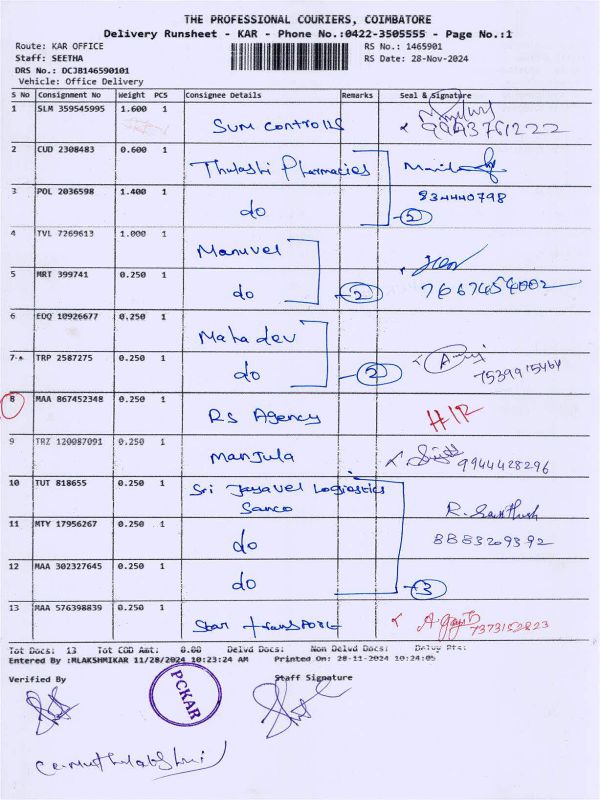 THE PROFESSIONAL COURIERS, COIMBATORE
Delivery Runsheet - KAR - Phone No.:0422-3505555 - Page No.:1
Route: KAR OFFICE RS No.: 1465901
Staff: SEETHA RS Date: 28-Nov-2024
DRS No.: DCJB146590101
Vehicle: Office Delivery
S No Consignment No Weight PCS Consignee Details Remarks Seal & Signature
1 SLM 359545995 1.600 1 Sum Controlls 9943761222
2 CUD 2308483 0.600 1 Thulashi Pharmacies
3 POL 2036598 1.400 1 do 934440798
4 TVL 7269613 1.000 1 Manuvel
5 MRT 399741 0.250 1 do 2 7667454002
6 EDQ 10926677 0.250 1 Mahadev
7 TRP 2587275 0.250 1 do 2 7539915464
8 MAA 867452348 0.250 1 RS Agency
9 TRZ 120087091 0.250 1 Manjula 9944428296
10 TUT 818655 0.250 1 Sri Jayavel Logistics
Sanco R. Santhosh
11 MTY 17956267 0.250 1 do 8883209392
12 MAA 302327645 0.250 1 do 3
13 MAA 576398839 0.250 1 Star transport 7373152823
Tot Docs: 13 Tot COD Amt: 0.00 Delvd Docs: Non Delvd Docs: Delvy Pts:
Entered By :MLAKSHMIKAR 11/28/2024 10:23:24 AM Printed On: 28-11-2024 10:24:05
Verified By Staff Signature
PCKAR